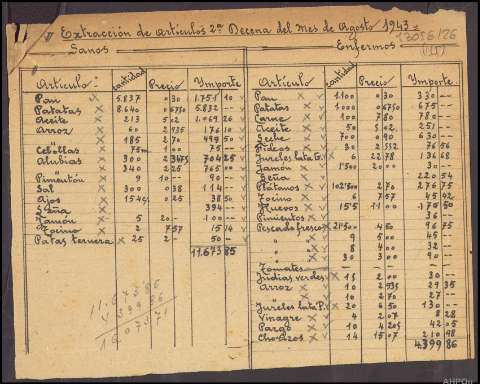 Extracción de Artículos 2ª Decena del Mes de Agosto 1943=
13056/26
Sanos
Enfermos
Artículo Cantidad Precio Importe
Pan 5.837 0 30 1.751 10
Patatas 8.640 0 6750 5.832 --
Aceite 213 5 02 1.069 26
Arroz 60 2 935 176 10
" 185 2 70 499 50
Cebollas 75 1 00 75 --
Alubias 300 2 3475 704 25
" 340 2 25 765 00
Pimentón 9 10 -- 90 --
Sal 300 0 38 114 --
Ajos 154 0 25 38 50
Leña 394 --
Jamón 5 20 -- 100 --
Tocino 2 7 57 15 14
Patas ternera 25 2 -- 50 --
11.673 85
11.673 85
4.399 86
16.073 71
Artículo Cantidad Precio Importe
Pan 1100 0 30 330 --
Patatas 1000 0 6750 675 --
Carne 100 7 80 780 --
Aceite 50 5 02 251 --
Leche 700 0 90 630 --
Fideos 30 2 552 76 56
Jureles lata G. 6 22 78 136 68
Jamón 1'500 20 00 30 --
Leña 220 54
Plátanos 102'500 2 70 276 75
Tocino 6 7 57 45 42
Huevos 15'5 11 00 170 50
Pimientos 36 --
Pescado fresco 21'500 4 50 96 75
" " 9 5 00 45 --
" " 8 4 00 32 --
" " 30 3 00 90 --
Tomates
Judías verdes 15 2 00 30 --
Arroz 10 2 935 29 35
" 10 2 70 27 --
Jureles lata P. 20 6 50 130 --
Vinagre 4 2 07 8 28
Pargo 10 4 205 42 05
Chorizos 14 15 07 210 98
4.399 86
AHPOu